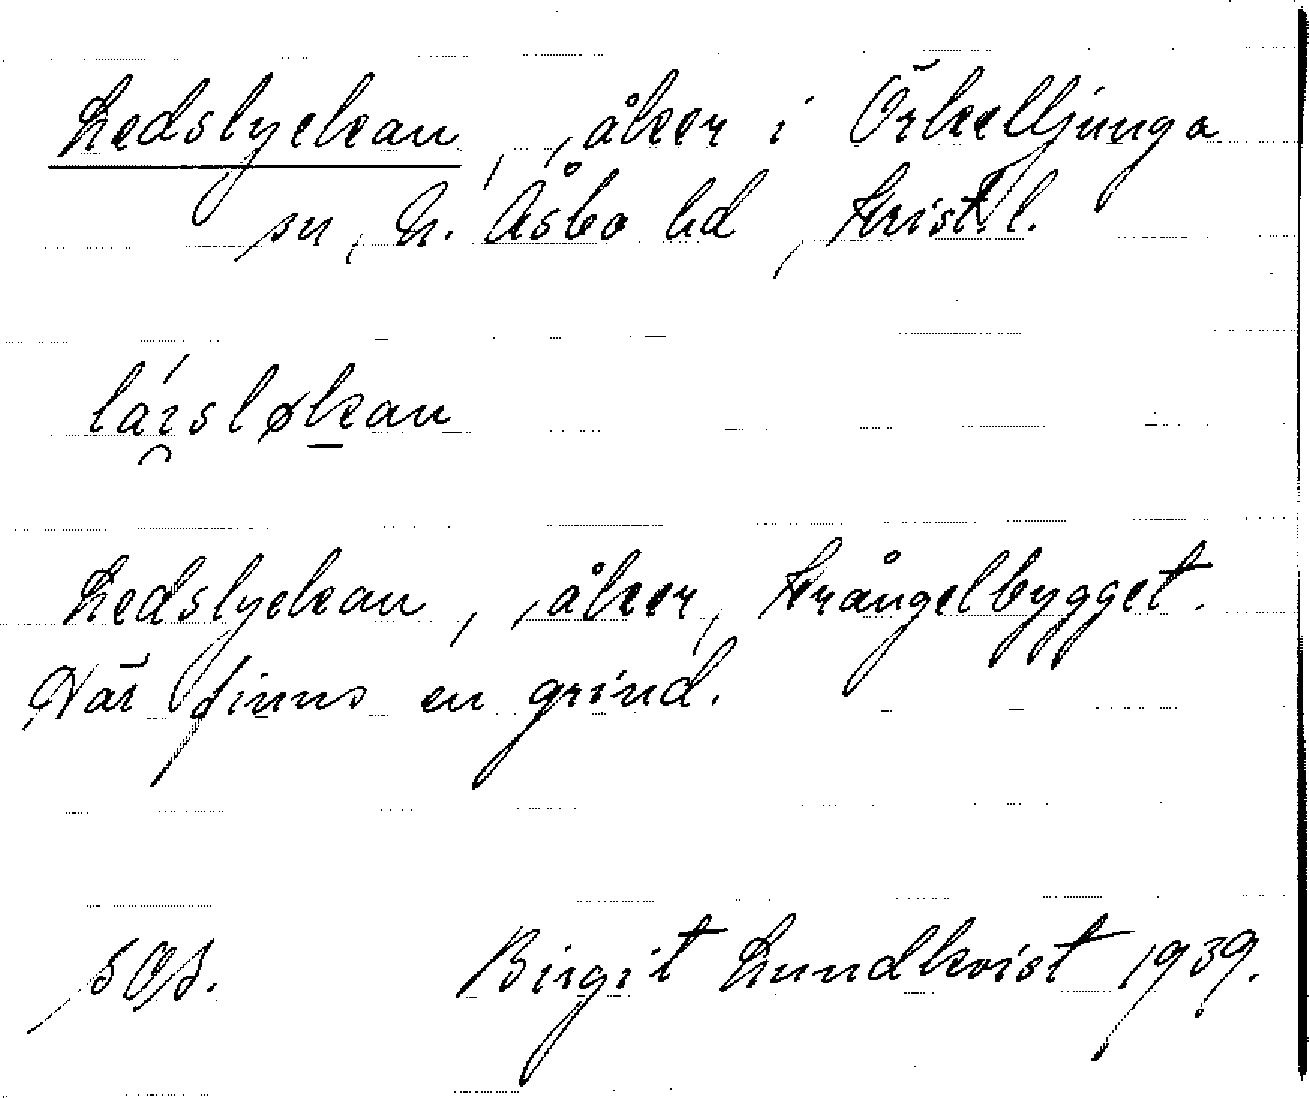 Ledslyckan, åker i Örkelljunga
sn, N. Åsbo hd, Krist. l.
Ledslyckan, åker, Krångelbygget.
Där finns en grind.
Birgit Lundkvist 1939.